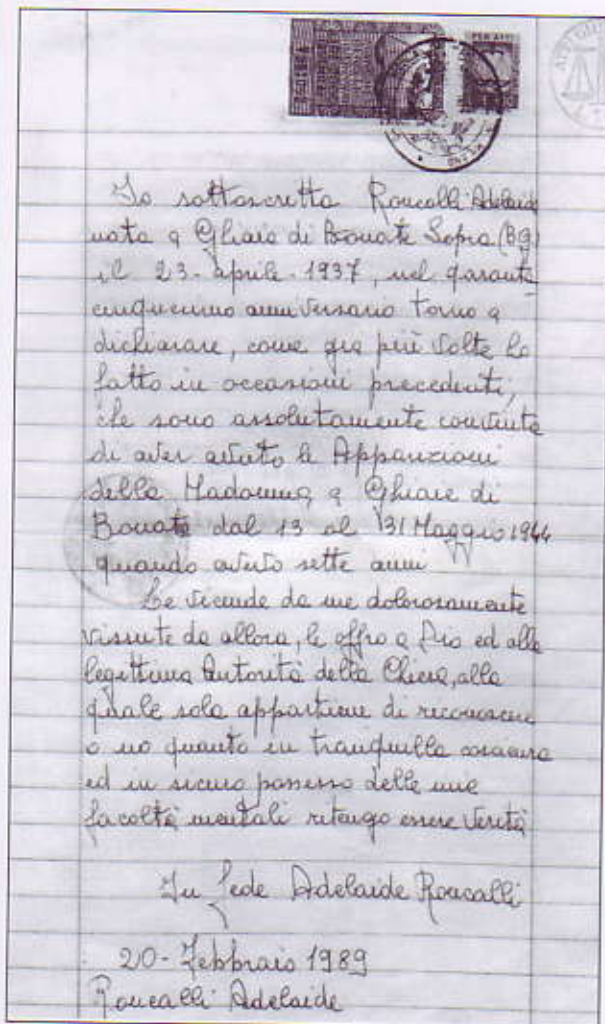 PER ATTI
Io sottoscritta Roncalli Adelaide
nata a Ghiaie di Bonate Sopra (BG)
il 23 - aprile - 1937, nel quarante
cinquesimo anniversario torno a
dichiarare, come già più volte ho
fatto in occasioni precedenti,
che sono assolutamente convinta
di aver avuto le Apparizioni
della Madonna a Ghiaie di
Bonate dal 13 al 31 Maggio 1944
quando avevo sette anni
Le vicende da me dolorosamente
vissute da allora, le offro a Dio ed alla
legittima Autorità della Chiesa, alla
quale sola appartiene di riconoscere
o no quanto in tranquilla coscienza
ed in sicuro possesso delle mie
facoltà mentali ritengo essere Verità
In fede Adelaide Roncalli
20 - Febbraio 1989
Roncalli Adelaide